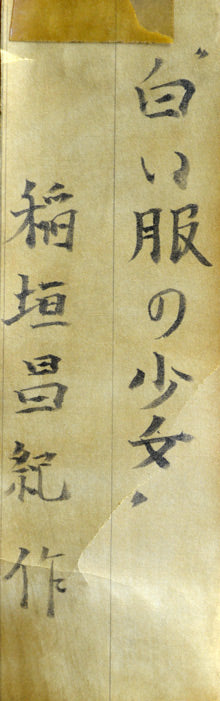 "白い服の少女"
稲垣昌紀 作